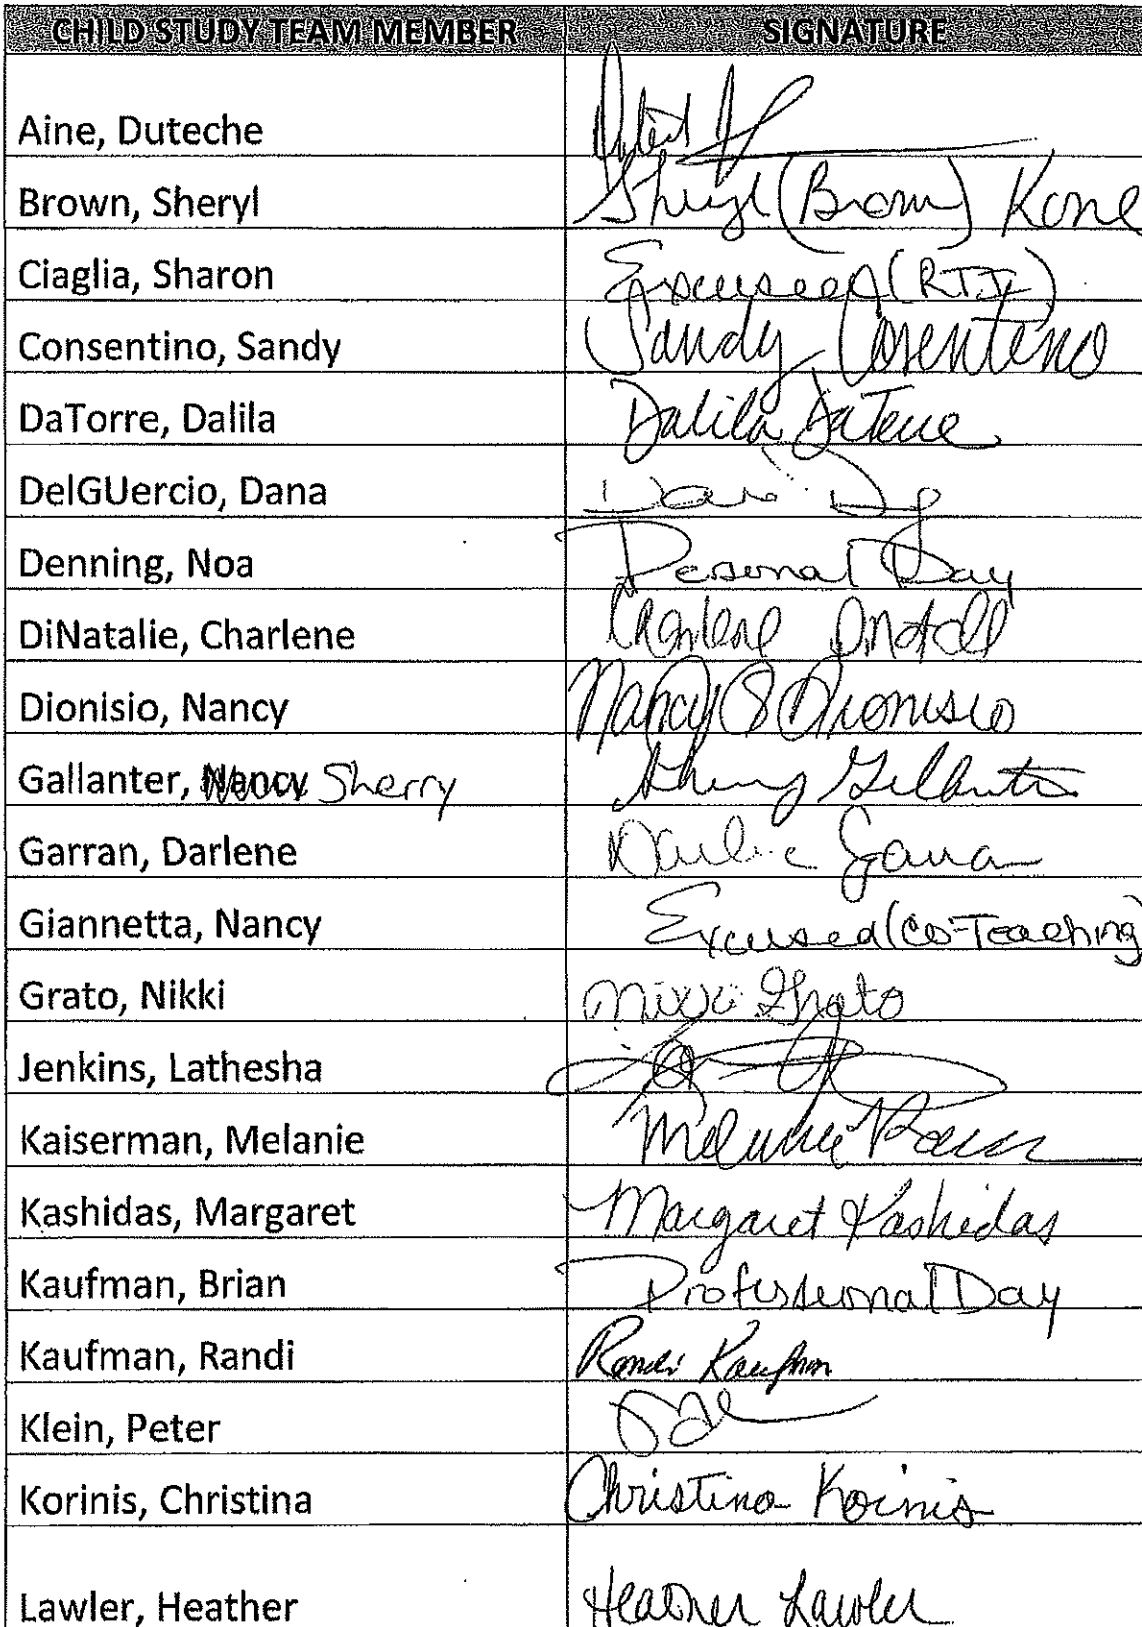 CHILD STUDY TEAM MEMBER SIGNATURE
Aine, Duteche
Brown, Sheryl Sheryl (Brown) Kone
Ciaglia, Sharon Excused (RTI)
Consentino, Sandy Sandy Cosentino
DaTorre, Dalila Dalila DaTorre
DelGUercio, Dana Dana
Denning, Noa Personal Day
DiNatalie, Charlene Charlene
Dionisio, Nancy Nancy Dionisio
Gallanter, Nancy Sherry Sherry
Garran, Darlene Darlene Garran
Giannetta, Nancy Excused (Co-Teaching)
Grato, Nikki Nikki Grato
Jenkins, Lathesha
Kaiserman, Melanie Melanie
Kashidas, Margaret Margaret Kashidas
Kaufman, Brian Professional Day
Kaufman, Randi Randi Kaufman
Klein, Peter
Korinis, Christina Christina Korinis
Lawler, Heather Heather Lawler